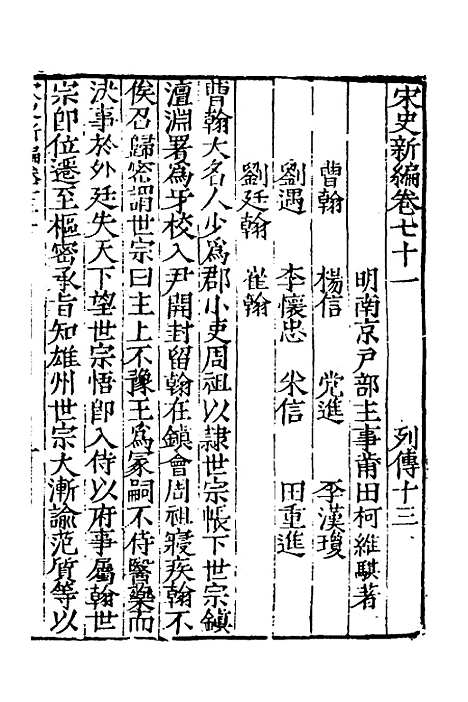 宋史新編卷七十一　列傳十三
明南京戶部主事莆田柯維騏著
曹翰　楊信　党進　李漢瓊
劉遇　李懷忠　米信　田重進
劉廷翰　崔翰
曹翰大名人少爲郡小吏周祖以隷世宗帳下世宗鎮
澶淵署爲牙校入尹開封留翰在鎮會周祖寢疾翰不
俟召歸密謂世宗曰主上不豫王爲冢嗣不侍醫藥而
决事於外廷失天下望世宗悟卽入侍以府事屬翰世
宗卽位遷至樞密承旨知雄州世宗大漸諭范質等以